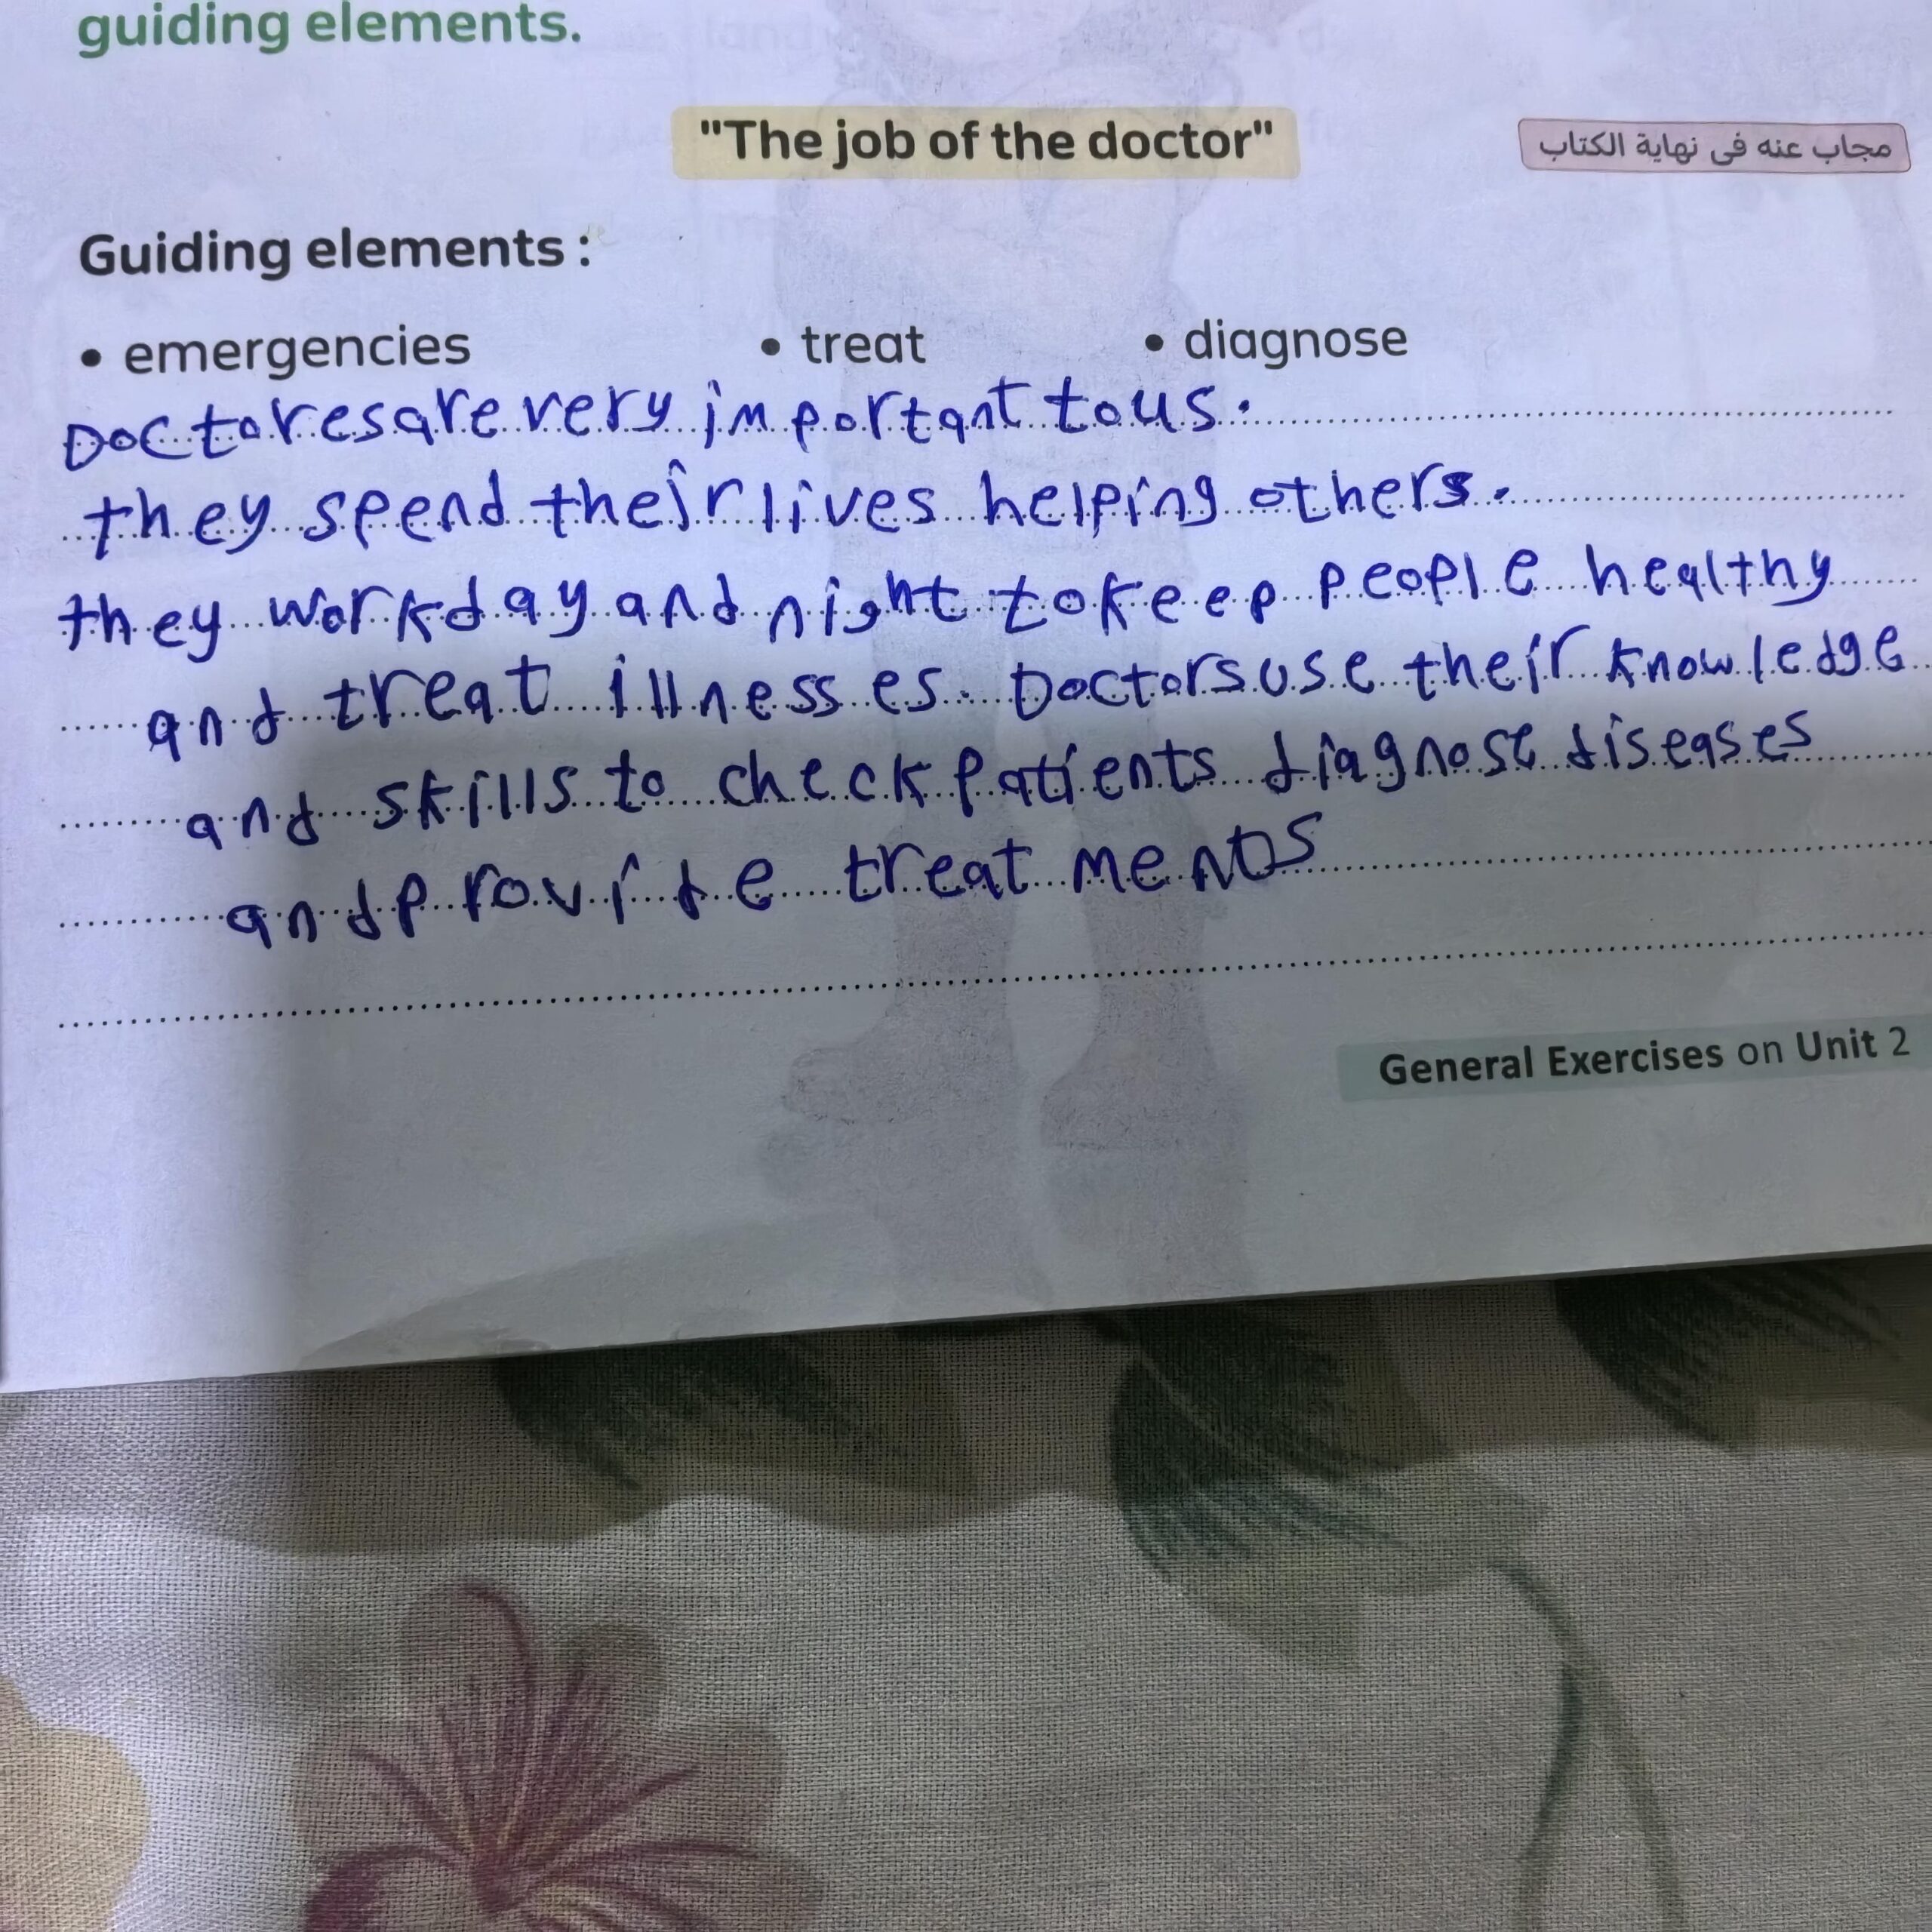 guiding elements.
"The job of the doctor"
مجاب عنه فى نهاية الكتاب
Guiding elements :
• emergencies • treat • diagnose
Doctores are very important to us.
they spend their lives helping others.
they work day and night to keep people healthy
and treat illnesses. Doctors use their knowledge
and skills to check patients diagnose diseases
and provide treatments
General Exercises on Unit 2